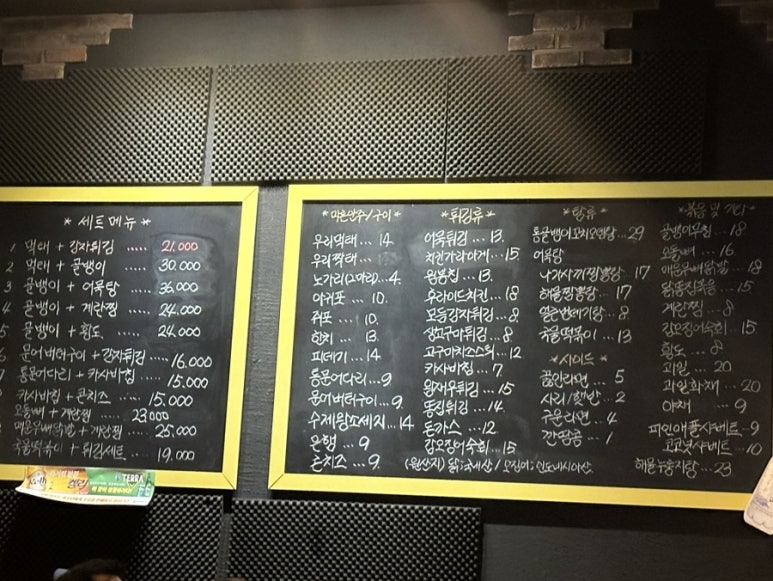 * 세트 메뉴 *
1 먹태 + 감자튀김 ..... 21.000
2 먹태 + 골뱅이 ..... 30.000
3 골뱅이 + 어묵탕 .... 36.000
4 골뱅이 + 계란찜 .... 24.000
5 골뱅이 + 황도 ..... 24.000
6 문어버터구이 + 감자튀김 ... 16.000
7 통문어다리 + 카사바칩 15.000
카사바칩 + 콘치즈 ... 15.000
오돌뼈 + 계란찜 23.000
매운우삼덮밥 + 계란찜 ... 25.000
국물떡볶이 + 튀김세트 ... 19.000
TERRA
* 마른안주/구이 *
우리먹태 ... 14
우리짝태 ...
노가리(2마리) .. 4
아귀포 ... 10.
쥐포 ... 10.
한치 ... 13.
피데기 ... 14
통문어다리 .. 9
문어버터구이 .. 9.
수제왕소세지 .. 14
은행 ... 9
콘치즈 ... 9
* 튀김류 *
어묵튀김 ... 13.
치킨가라아게 ... 15
웜봉칩 ... 13.
후라이드치킨 .. 18
모듬감자튀김 .. 8
생고구마튀김 .. 8
고구마치즈스틱 .. 12
카사바칩 ... 7
왕새우튀김 ... 15
똥집튀김 ... 14
돈까스 ... 12
감오징어숙회 ... 15
(원산지) 닭:국내산 / 오징어: 인도네시아산
* 탕류 *
통골뱅이꼬치오뎅탕 .. 29
어묵탕
나가사끼짬뽕탕 17
해물짬뽕탕 ... 17
얼큰번데기탕 .. 8
국물떡볶이 ... 13
* 사이드 *
꿀임라면 ... 5
사리/햇반 ... 2
구운라면 ... 4
간얼음 ... 1
* 볶음 및 기타 *
골뱅이무침 ... 18
오돌뼈 ... 16
닭똥집볶음 ... 15
계란찜 ... 8
갑오징어숙회 ... 15
황도 ... 8
과일 ... 20
과일화채 ... 20
야채 ... 9
파인애플샤베트 .. 9
코코넛샤베트 ... 10
해물누룽지탕 ... 23